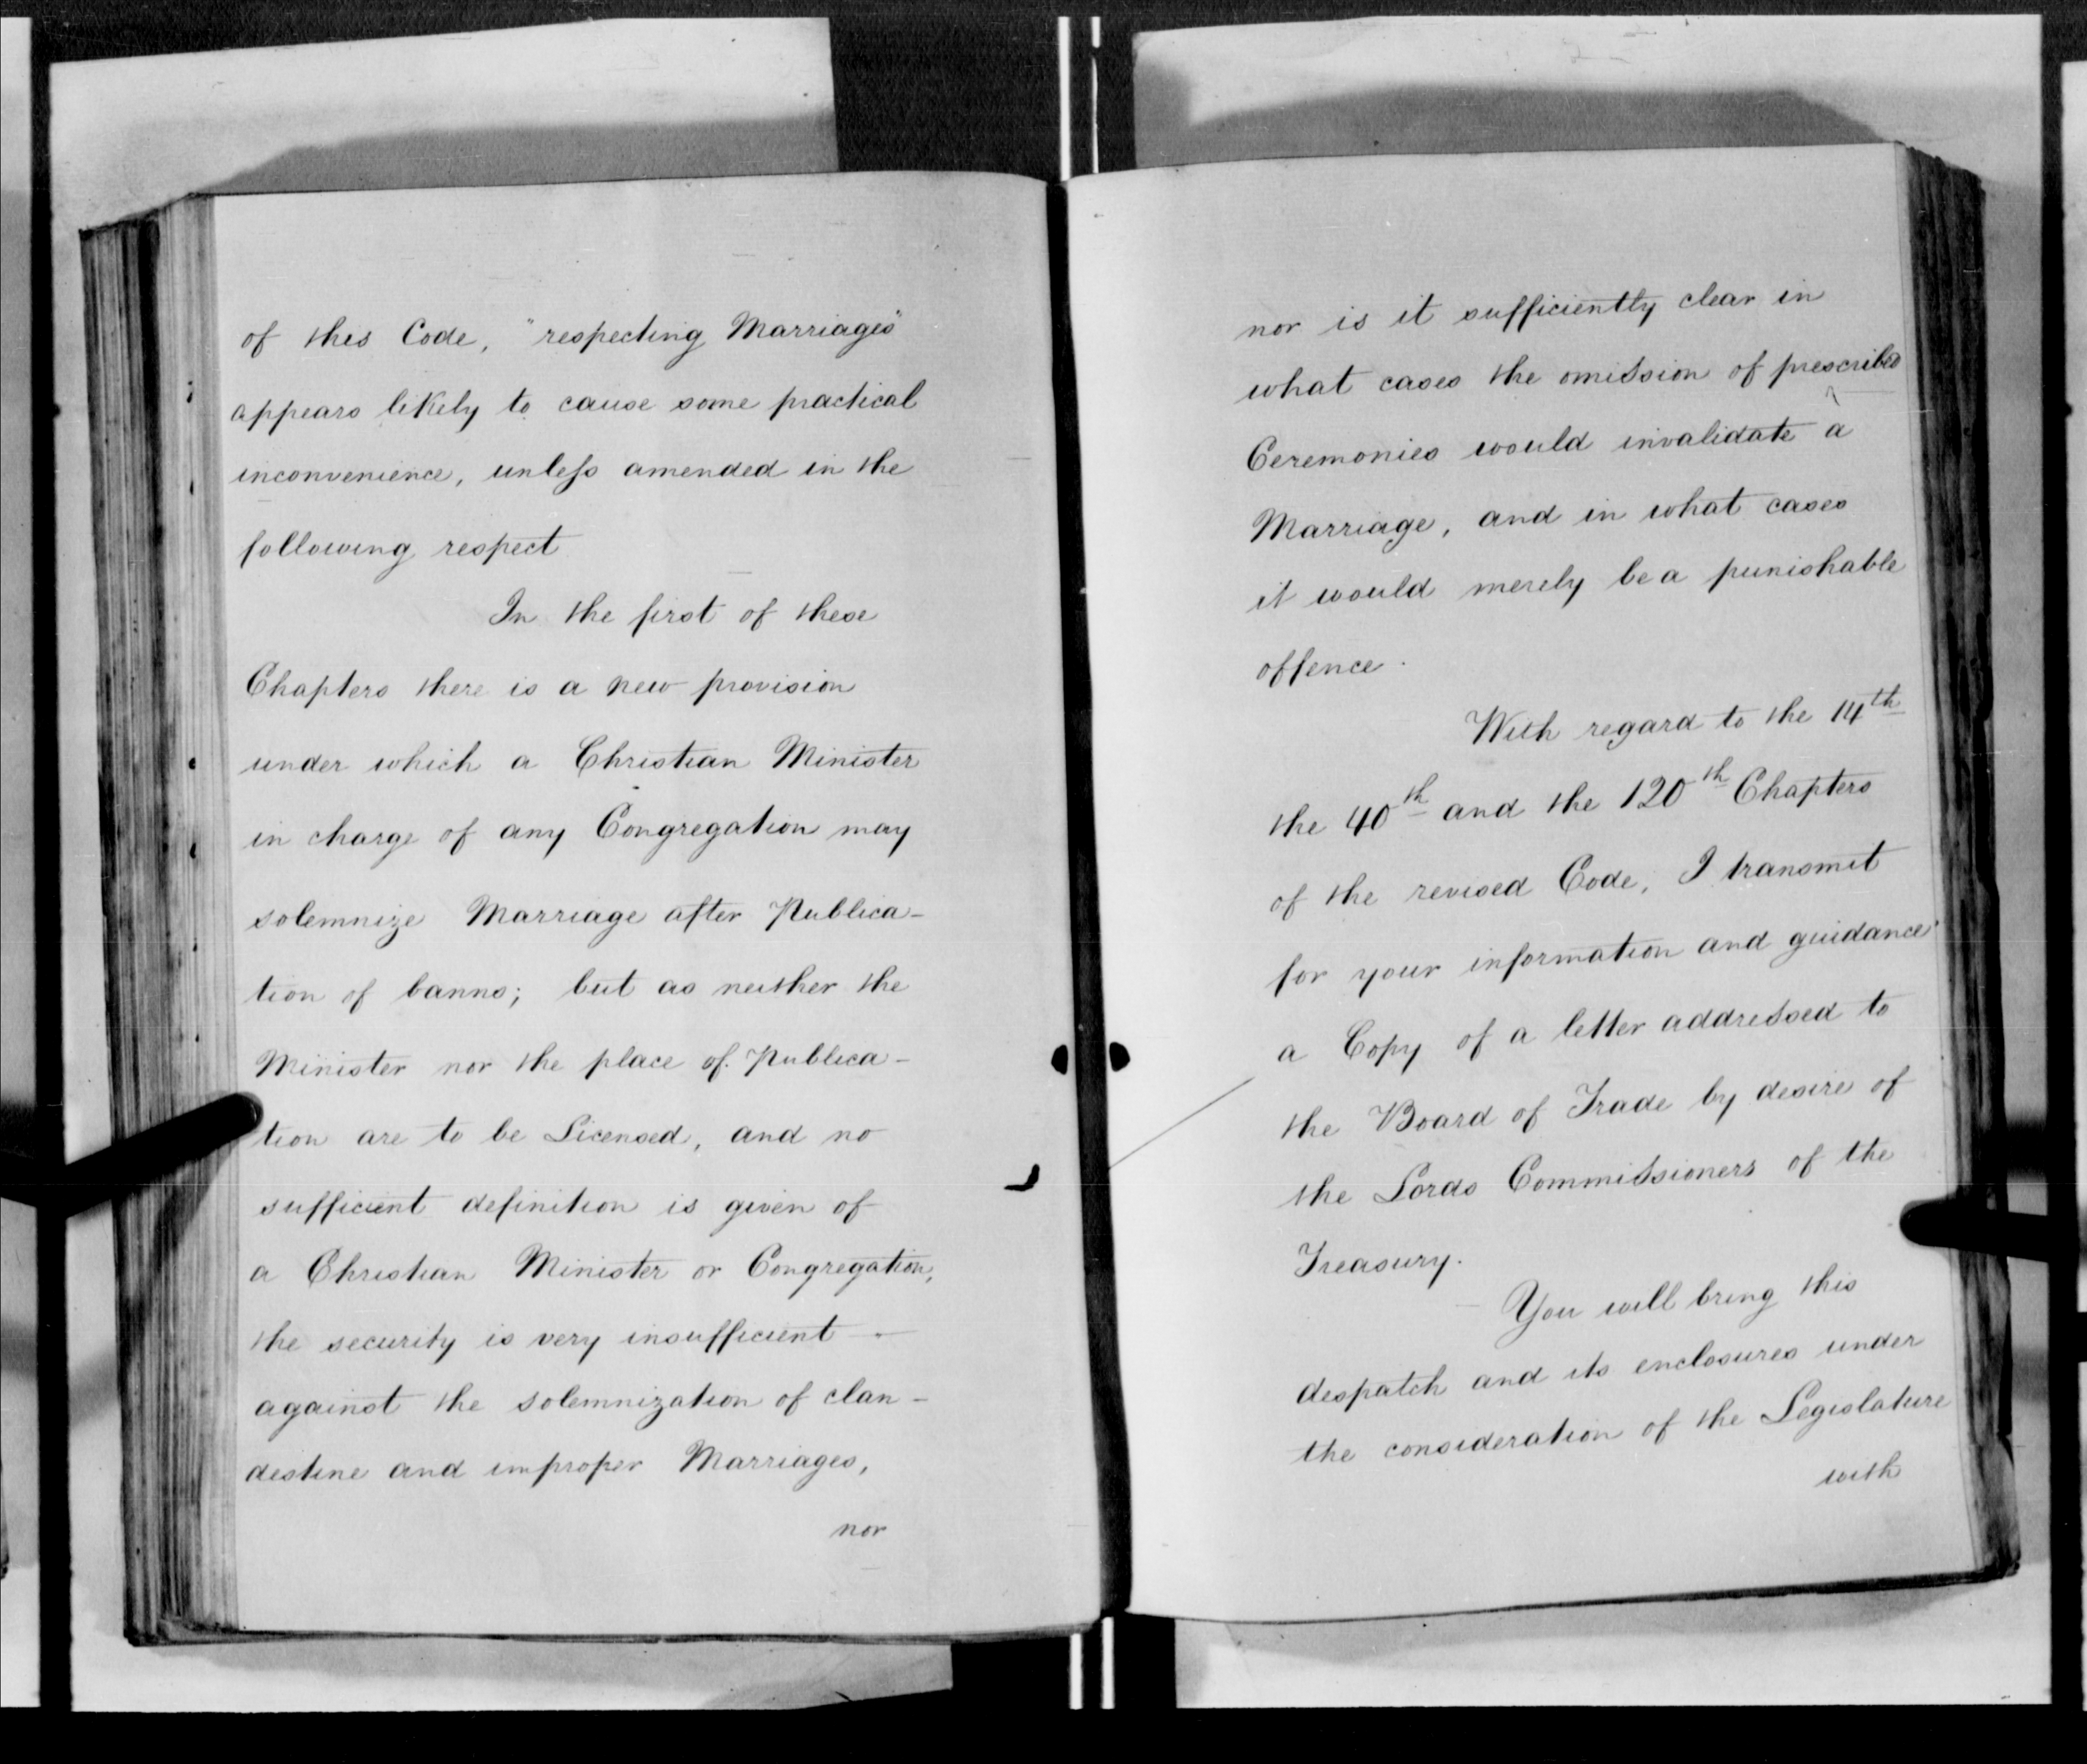 of this Code, "respecting Marriages"
appears likely to cause some practical
inconvenience, unless amended in the
following respect
In the first of these
Chapters there is a new provision
under which a Christian Minister
in charge of any Congregation may
solemnize Marriage after Publica-
tion of banns; but as neither the
Minister nor the place of Publica-
tion are to be Licensed, and no
sufficient definition is given of
a Christian Minister or Congregation,
the security is very insufficient
against the solemnization of clan-
destine and improper Marriages,
nor
nor is it sufficiently clear in
what cases the omission of prescribed
Ceremonies would invalidate a
Marriage, and in what cases
it would merely be a punishable
offence.
With regard to the 14th
the 40th and the 120th Chapters
of the revised Code, I transmit
for your information and guidance
a Copy of a letter addressed to
the Board of Trade by desire of
the Lords Commissioners of the
Treasury.
You will bring this
despatch and its enclosures under
the consideration of the Legislature
with